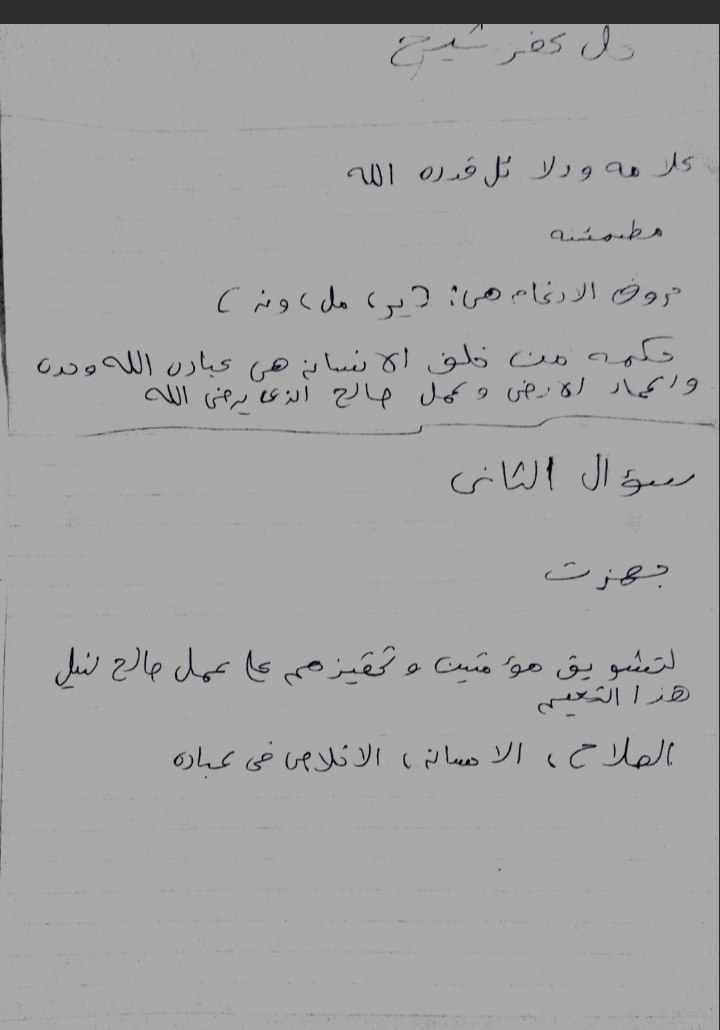 حل كفر شيخ
علامه ودلا ئل قدره الله
مطمئنه
حروف الادغام هى: (ير، مل، ونه)
حكمه من خلق الانسان هى عبادن الله وحده
واعمار الارض وعمل صالح الذى يرضى الله
سؤال الثانى
جهزت
لتشويق مؤمنين وتحفيزهم على عمل صالح لنيل
هذا النعيم
الصلاح، الامانه، الاخلاص فى عباده